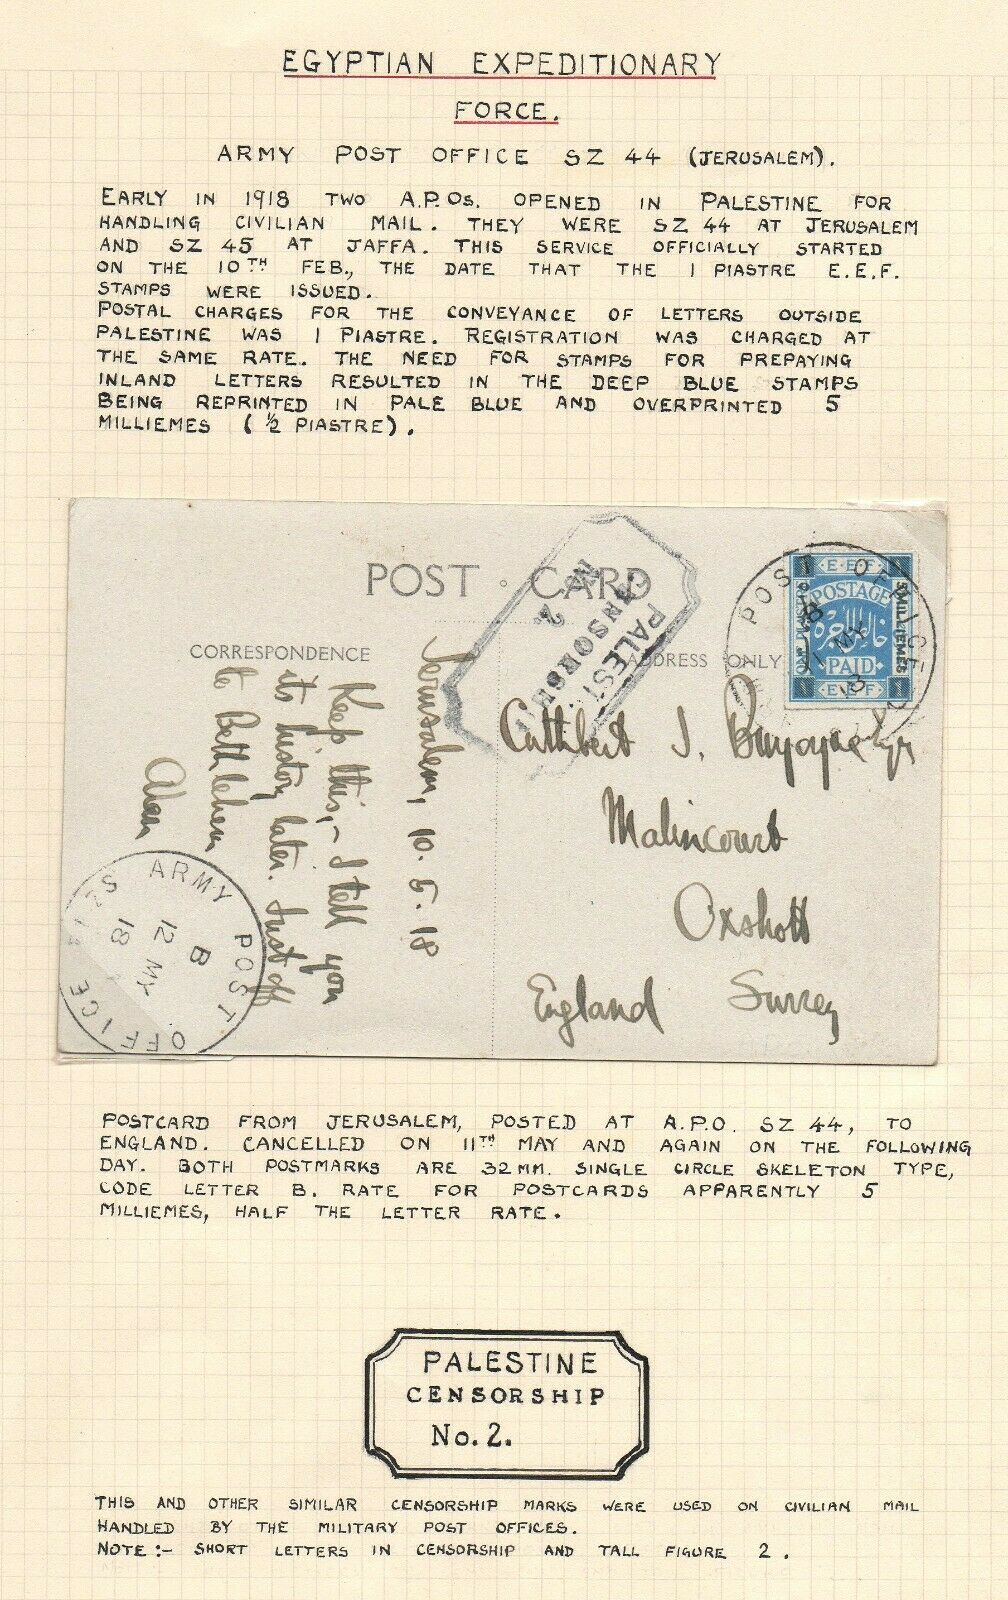 EGYPTIAN EXPEDITIONARY
FORCE.
ARMY POST OFFICE SZ 44 (JERUSALEM).
EARLY IN 1918 TWO A.P.Os. OPENED IN PALESTINE FOR
HANDLING CIVILIAN MAIL. THEY WERE SZ 44 AT JERUSALEM
AND SZ 45 AT JAFFA. THIS SERVICE OFFICIALLY STARTED
ON THE 10TH FEB., THE DATE THAT THE 1 PIASTRE E.E.F.
STAMPS WERE ISSUED.
POSTAL CHARGES FOR THE CONVEYANCE OF LETTERS OUTSIDE
PALESTINE WAS 1 PIASTRE. REGISTRATION WAS CHARGED AT
THE SAME RATE. THE NEED FOR STAMPS FOR PREPAYING
INLAND LETTERS RESULTED IN THE DEEP BLUE STAMPS
BEING REPRINTED IN PALE BLUE AND OVERPRINTED 5
MILLIEMES (½ PIASTRE).
POST CARD
CORRESPONDENCE
ADDRESS ONLY
PALEST
No. 2.
POST OFFICE
B
11 MY
18
E.E.F
POSTAGE
PAID
E.E.F
5 MILLIEMES
Jerusalem, 10.5.18
Keep this,- I tell you
its history later. Just off
to Bethlehem
Alan
Cuthbert J.
Malincourt
Oxshott
Surrey
England
ARMY POST OFFICE SZ 44
B
12 MY
18
POSTCARD FROM JERUSALEM, POSTED AT A.P.O. SZ 44, TO
ENGLAND. CANCELLED ON 11TH MAY AND AGAIN ON THE FOLLOWING
DAY. BOTH POSTMARKS ARE 32MM. SINGLE CIRCLE SKELETON TYPE,
CODE LETTER B. RATE FOR POSTCARDS APPARENTLY 5
MILLIEMES, HALF THE LETTER RATE.
PALESTINE
CENSORSHIP
No. 2.
THIS AND OTHER SIMILAR CENSORSHIP MARKS WERE USED ON CIVILIAN MAIL
HANDLED BY THE MILITARY POST OFFICES.
NOTE :- SHORT LETTERS IN CENSORSHIP AND TALL FIGURE 2.